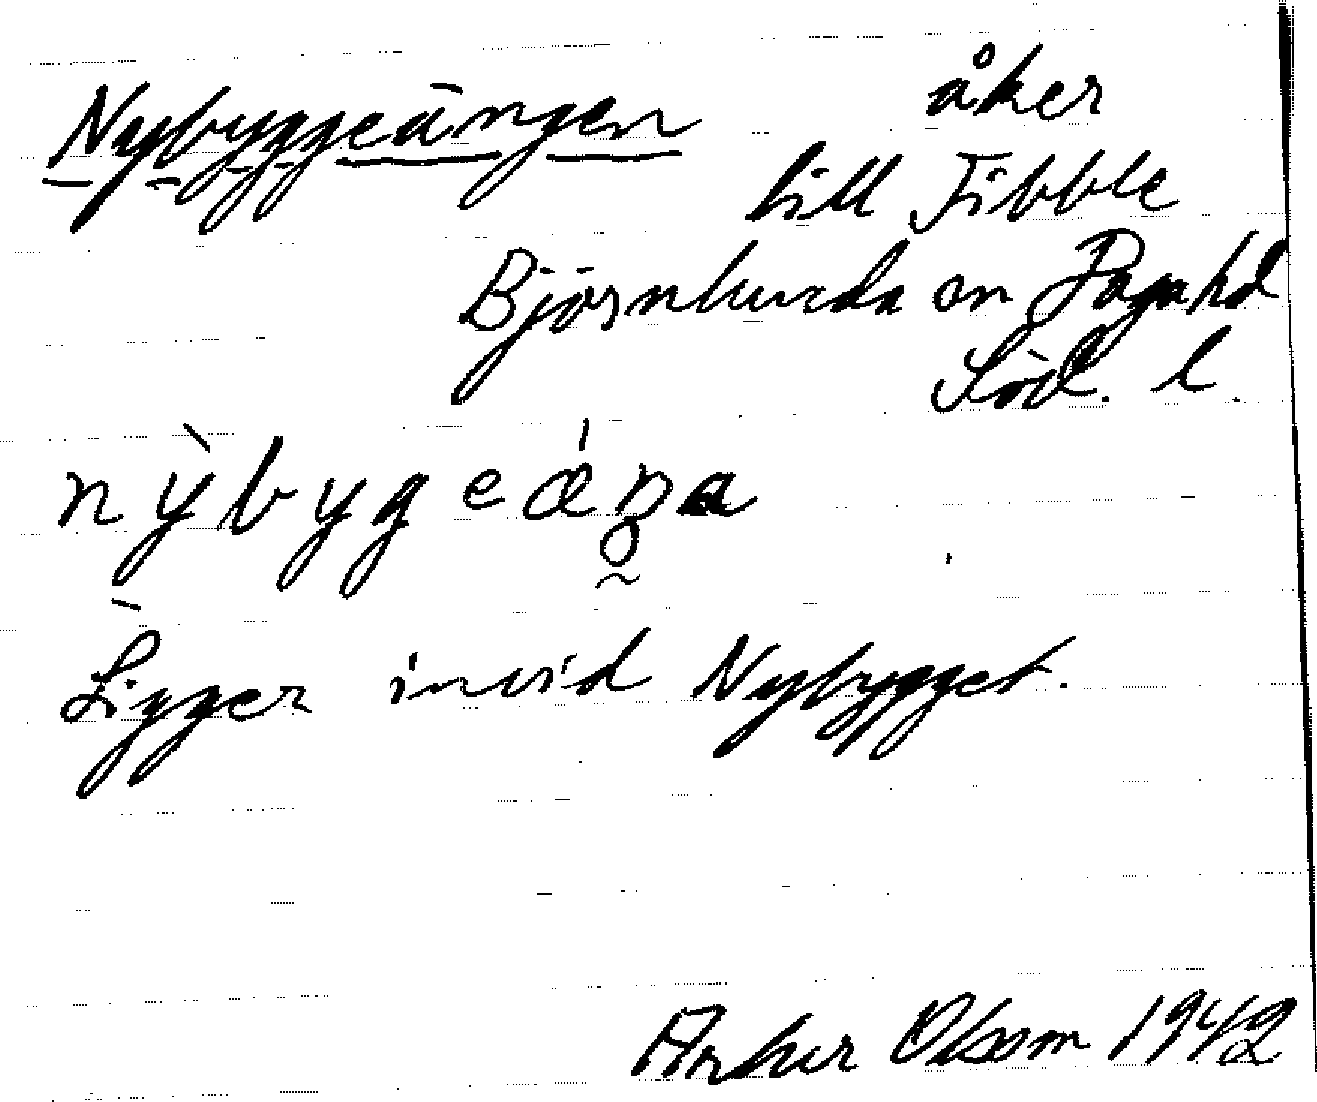 Nybyggeängen åker
till Fibble
Björnlunda sn Daga hd
Söd. l.
nỳbygeǽŋa
Ligger invid Nybygget.
Arthur Olsson 1942